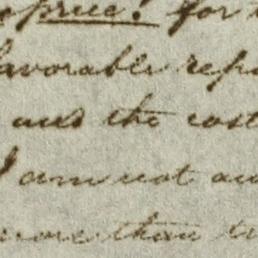 price! for
favorable rep
and the cost
I am not aw
more than tr